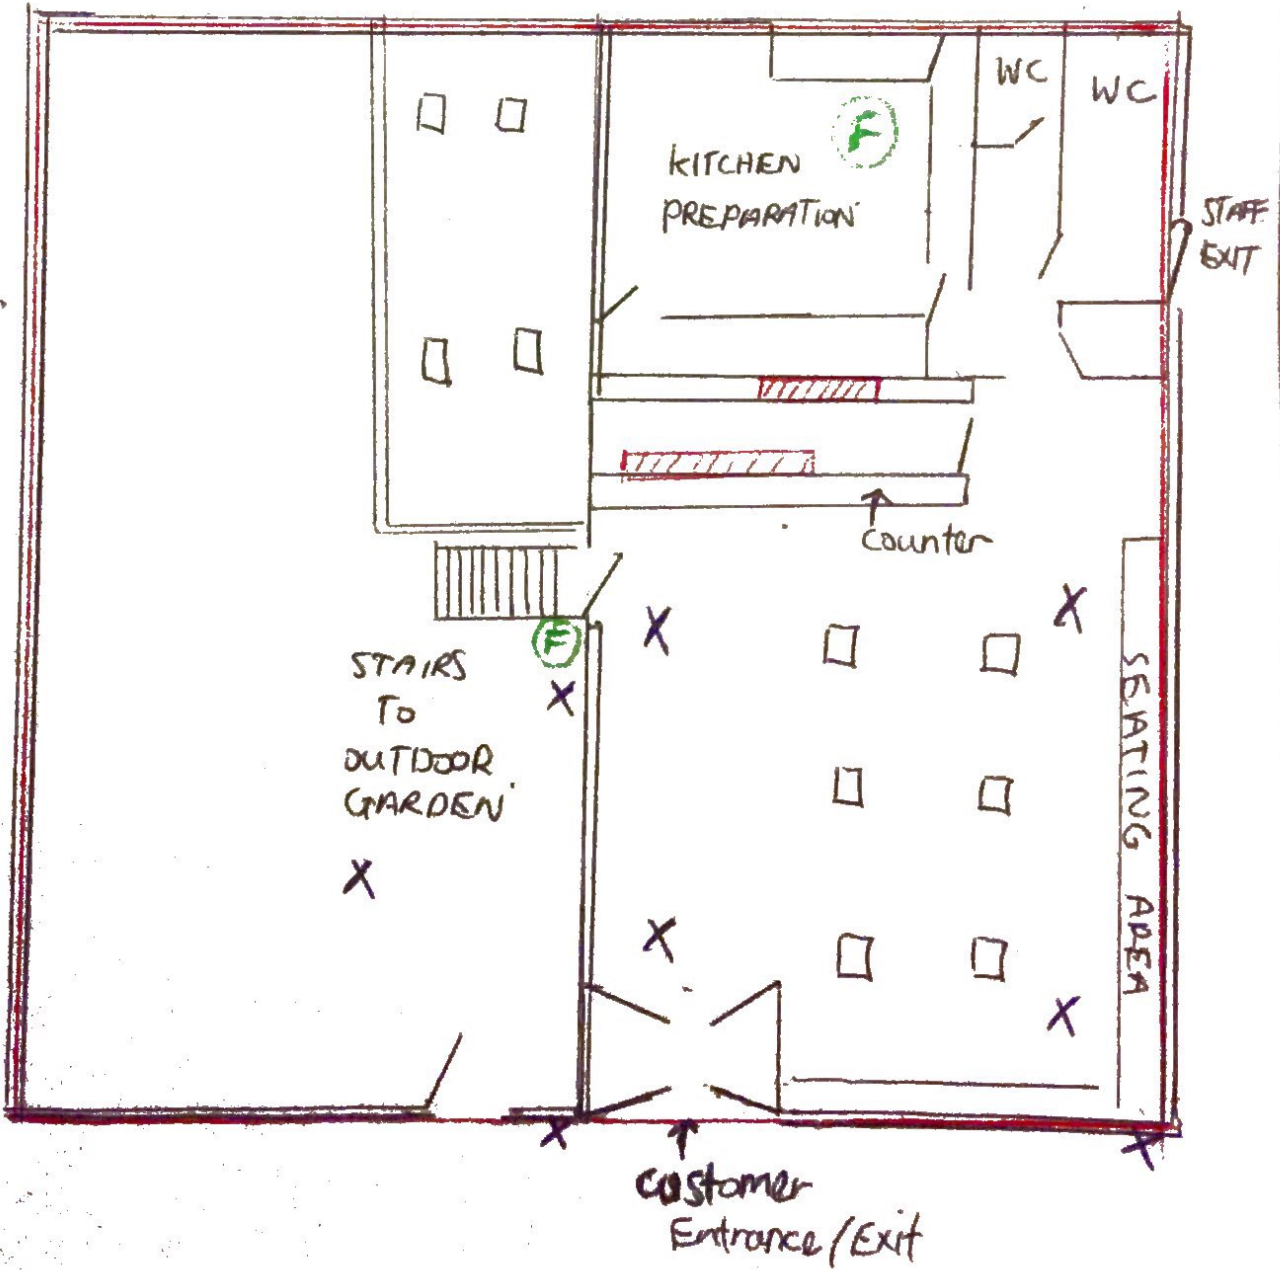 WC
WC
F
KITCHEN
PREPARATION
STAFF
EXIT
Counter
F
STAIRS
TO
OUTDOOR
GARDEN
SEATING AREA
X
X
X
X
X
X
X
X
customer
Entrance/Exit